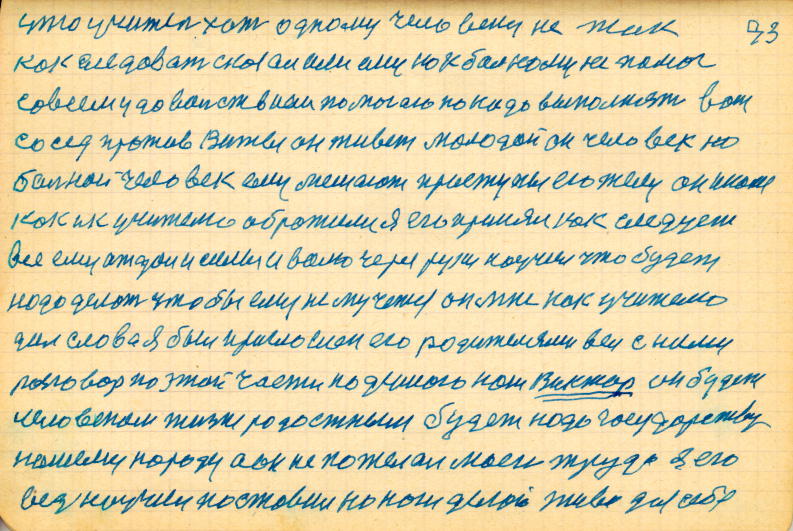 что учител хот одному человеку не так 73
как следоват сказал или ему как балному не помог
совсем удоволства и помогаю по надо выполнят вот
сосед против Витвы он живет молодой он человек но
балной человек ему мешают простужы его жему он
как и к учителю обротился я его принял как следует
все ему отдал и силы и волю через руки научил что будет
надо делат чтобы ему не мучется он мне как учителю
дал слова я был приглосшен его родителями вел с ними
разговор по этой части подумого наш Виктор он будет
человеком жизнерадостным будет надо государству
нашему народу а он не пожелал моего труда я его
вед научил поставил на ноги делай живи для себя